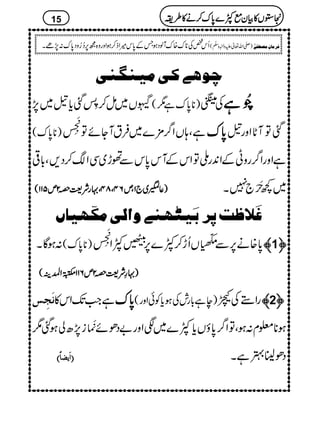 نجاستوں کا بیان مع کپڑے پاک کرنے کا طریقہ
15
فرمانِ مصطفٰے (صلی اللہ تعالیٰ علیہ واٰلہ وسلم) اُس شخص کی ناک خاک آلود ہو جس کے پاس میرا ذکر ہو اور وہ مجھ پر دُرُودِ پاک نہ پڑھے۔
چوہے کی مینگنی
چُوہے کی مینگنی (ناپاک ہے مگر) گیہوں میں مل کر پس گئی یا تیل میں پڑ
گئی تو آٹا اور تیل پاک ہے، ہاں اگر مزے میں فرق آ جائے تو نَجِس (ناپاک)
ہے اور اگر روٹی کے اندر ملی تو اس کے آس پاس سے تھوڑی سی الگ کر دیں، باقی
میں کچھ حَرَج نہیں۔ (عالمگیری ج۱ ص۴۶، ۴۸، بہارِ شریعت حصہ ۲ ص۱۱۵)
غَلاظت پر بَیٹھنے والی مکّھیاں
﴿1﴾ پاخانے پر سے مکھیاں اُڑ کر کپڑے پر بیٹھیں کپڑا نَجِس (ناپاک) نہ ہوگا۔
(بہارِ شریعت حصہ ۲ ص۱۱۶ مکتبۃ المدینہ)
﴿2﴾ راستے کی کیچڑ (چاہے بارش کی ہو یا کوئی اور) پاک ہے جب تک اس کا نَجِس
ہونا معلوم نہ ہو، تو اگر پاؤں یا کپڑے میں لگی اور بے دھوئے نَماز پڑھ لی ہوگئی مگر
دھو لینا بہتر ہے۔ (اَیضاً)